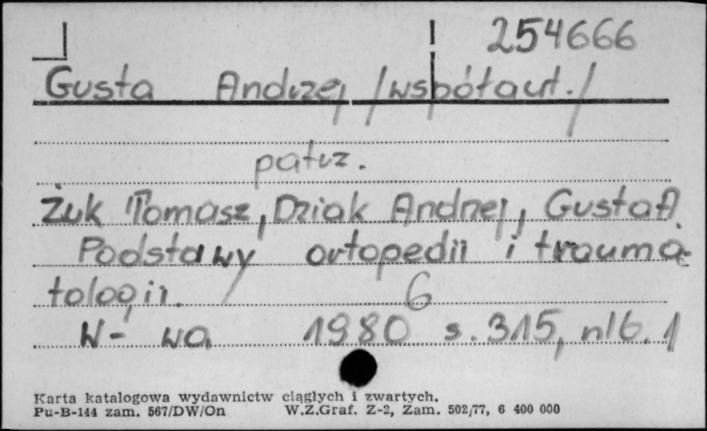 254666
Gusta Andrzej /współaut./
patrz.
Żuk Tomasz, Dziak Andrzej, Gusta A.
Podstawy ortopedii i trauma-
tologii. 6
W-wa 1980 s. 315, nlb. 1
Karta katalogowa wydawnictw ciągłych i zwartych.
Pu-B-144 zam. 567/DW/On W.Z.Graf. Z-2, Zam. 502/77, 6 400 000